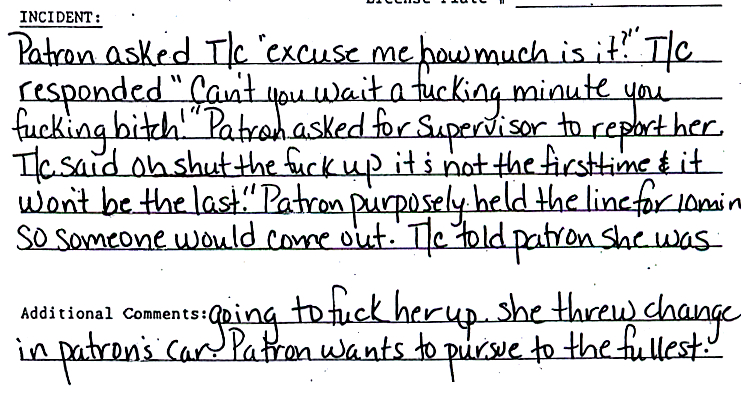 INCIDENT:
Patron asked T/c "excuse me how much is it?" T/c
responded "Can't you wait a fucking minute you
fucking bitch!" Patron asked for Supervisor to report her.
T/c said oh shut the fuck up it's not the first time & it
won't be the last." Patron purposely held the line for 10min
so someone would come out. T/c told patron she was
Additional Comments: going to fuck her up. she threw change
in patron's car. Patron wants to pursue to the fullest.